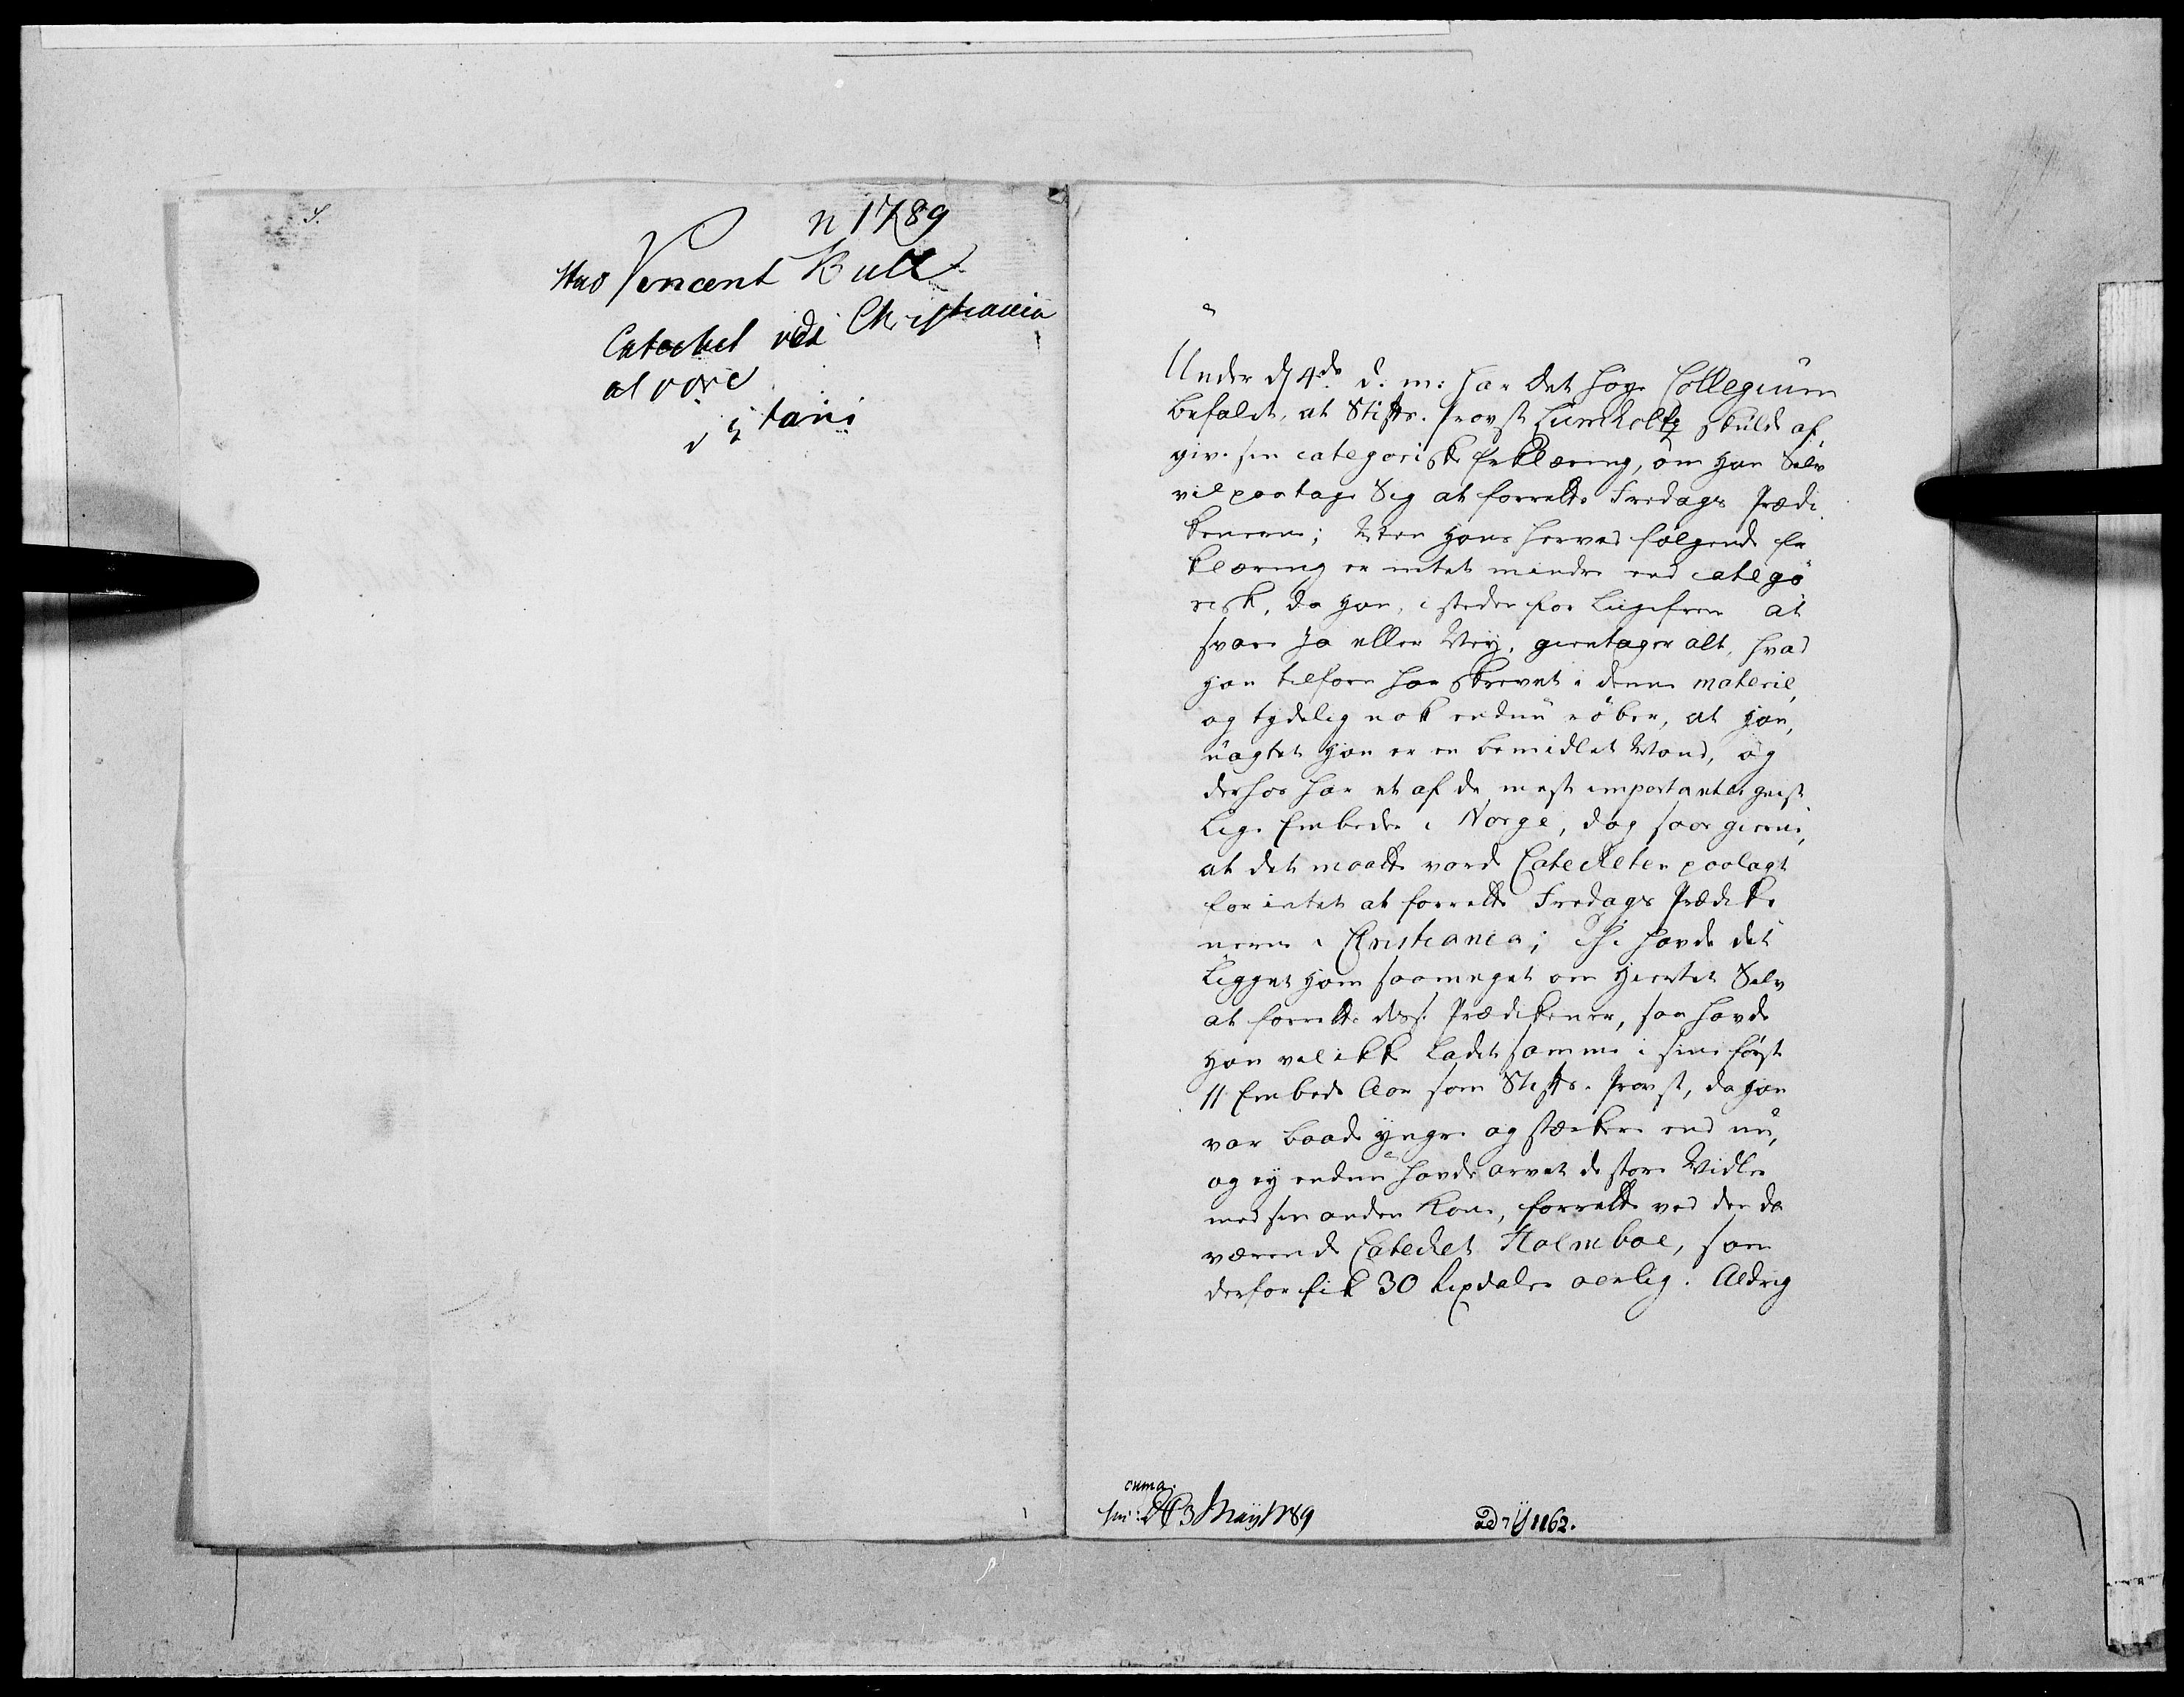 n 1789
Hr Vincent Bull
Catechet ved Christiania
at være
Under d 4de d. m: har det høye Collegium
befalet, at Stifts-Provst Lumholtz skulde af-
give sin categoriske Erklæring, om Han Selv
vil paatage Sig at forrette Fredags Prædi-
kenerne; Men Hans herved følgende Er-
klæring er intet mindre end catego-
risk, da Han, i steden for ligefrem at
svare Ja eller Ney, gientager alt, hvad
Han tilforn har skrevet i denne materie,
og tydelig nok endnu røber, at Han,
uagtet Han er en bemidlet Mand, og
derhos har et af de mest importante geist-
lige Embeder i Norge, dog saae gierne,
at det maatte vorde Catecheten paalagt
for intet at forrette Fredags Prædike-
nerne i Christiania; Thi havde det
ligget Ham saameget om Hiertet Selv
at forrette disse Prædikener, saa havde
Han vel ikke ladet samme i sine første
11 Embeds Aar som Stifts-Provst, da Han
var baade yngre og stærkere end nu,
og ey endnu havde arvet de store Midler
med sin anden Kone, forrette ved den da-
værende Catechet Holmboe, som
derfor fik 30 Rixdaler aarlig. Aldrig
3 Maij 1789
ad 1162.